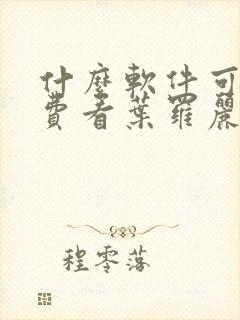 什麼軟件可
費看葉羅麗
程零落